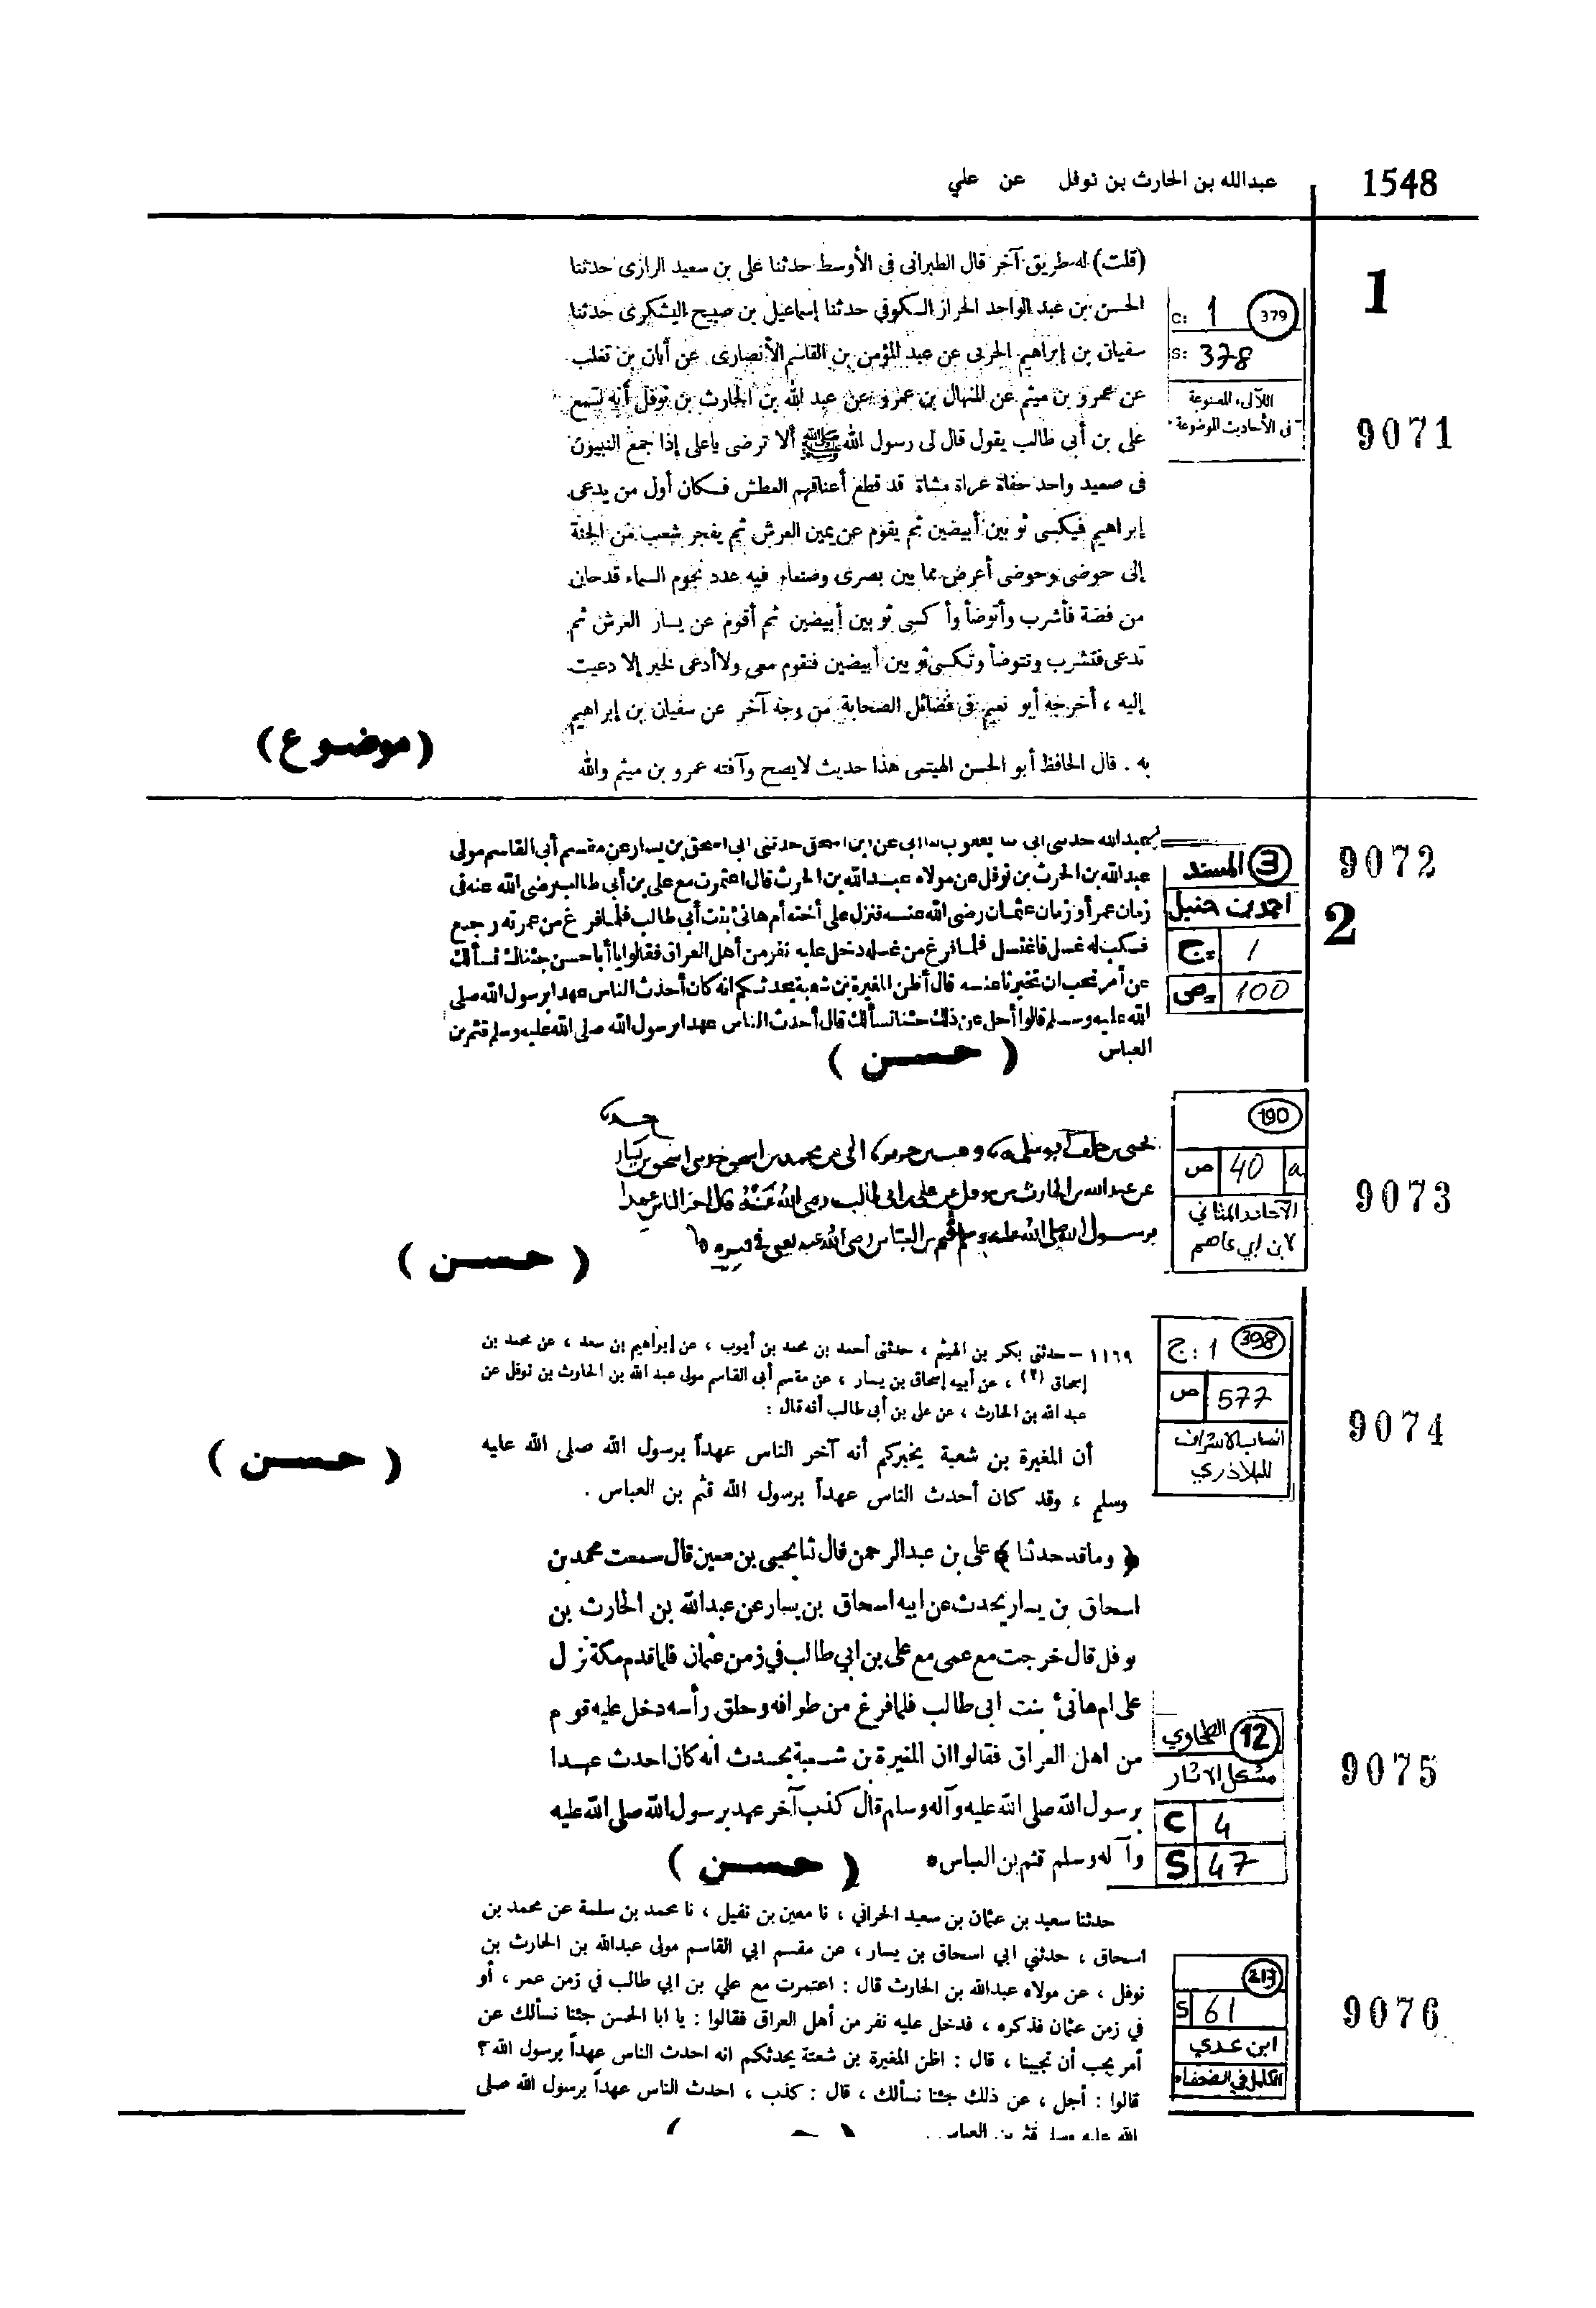 1548
عبدالله بن الحارث بن نوفل عن علي
1
(قلت) له طريق آخر قال الطبرانى فى الأوسط حدثنا على بن سعيد الرازى حدثنا
الحسن بن عبد الواحد الخراز الكوفي حدثنا إسماعيل بن صبيح اليشكرى حدثنا
سفيان بن إبراهيم الحربى عن عبد المؤمن بن القاسم الأنصارى عن أبان بن تغلب
عن عمرو بن ميثم عن المنهال بن عمرو عن عبد الله بن الحارث بن نوفل أنه سمع
على بن أبى طالب يقول قال لى رسول الله ﷺ ألا ترضى ياعلى إذا جمع النبيون
فى صعيد واحد حفاة عراة مشاة قد قطع أعناقهم العطش فكان أول من يدعى
إبراهيم فيكسى ثوبين أبيضين ثم يقوم عن يمين العرش ثم يفجر شعب من الجنة
إلى حوضى وحوضى أعرض مما بين بصرى وصنعاء فيه عدد نجوم السماء قدحان
من فضة فأشرب وأتوضأ وأكسى ثوبين أبيضين ثم أقوم عن يسار العرش ثم
تدعى فتشرب وتتوضأ وتكسى ثوبين أبيضين فتقوم معى ولا أدعى لخير إلا دعيت
إليه ، أخرجه أبو نعيم فى فضائل الصحابة من وجه آخر عن سفيان بن إبراهيم
به . قال الحافظ أبو الحسن الهيتمى هذا حديث لايصح وآفته عمرو بن ميثم والله
(موضوع)
C: 1 379
S: 378
اللآلىء المصنوعة
فى الأحاديث الموضوعة
9071
عبدالله حدثنى أبى ثنا يعقوب ثنا أبى عن ابن اسحق حدثنى أبى اسحق بن يسار عن مقسم أبى القاسم مولى
عبدالله بن الحرث بن نوفل عن مولاه عبدالله بن الحرث قال اعتمرت مع على بن أبى طالب رضى الله عنه فى
زمان عمر أو زمان عثمان رضى الله عنه فنزل على أخته أم هانئ بنت أبى طالب فلما فرغ من عمرته رجع
فسكب له غسل فاغتسل فلما فرغ من غسله دخل عليه نفر من أهل العراق فقالوا يا أبا حسن جئناك نسألك
عن أمر نحب ان تخبرنا عنه قال أظن المغيرة بن شعبة يحدثكم انه كان أحدث الناس عهدا برسول الله صلى
الله عليه وسلم قالوا أجل عن ذلك جئنا نسألك قال أحدث الناس عهدا برسول الله صلى الله عليه وسلم قثم بن
العباس
(حسن)
3 المسند
احمد بن حنبل
ج= 1
ص= 100
9072
2
يحيى بن خلف أبو سلمة
محمد بن اسحق
عن عبدالله بن الحارث بن نوفل عن على بن ابى طالب رضى الله عنه قال اخر الناس عهدا
برسول الله صلى الله عليه وسلم قثم بن العباس رضى الله عنه يعنى فى قبره
(حسن)
190
a 40 ص
الآحاد المثاني
لابن ابي عاصم
9073
١١٦٩ – حدثنى بكر بن الهيثم ، حدثنى أحمد بن محمد بن أيوب ، عن إبراهيم بن سعد ، عن محمد بن
إسحاق (٢) ، عن أبيه إسحاق بن يسار ، عن مقسم أبى القاسم مولى عبد الله بن الحارث بن نوفل عن
عبد الله بن الحارث ، عن على بن أبى طالب أنه قال :
أن المغيرة بن شعبة يخبركم أنه آخر الناس عهداً برسول الله صلى الله عليه
وسلم ، وقد كان أحدث الناس عهداً برسول الله قثم بن العباس .
(حسن)
ج: 1 398
ص 577
انساب الاشراف
للبلاذري
9074
﴿ وماقد حدثنا ﴾ على بن عبدالرحمن قال ثنا يحيى بن معين قال سمعت محمد بن
اسحاق بن يسار يحدث عن ابيه اسحاق بن يسار عن عبدالله بن الحارث بن
نوفل قال خرجت مع عمى مع على بن ابي طالب في زمن عثمان فلما قدم مكة نزل
على ام هانئ بنت ابى طالب فلما فرغ من طوافه وحلق رأسه دخل عليه قوم
من اهل العراق فقالوا ان المغيرة بن شعبة يحدث انه كان احدث عهدا
برسول الله صلى الله عليه وآله وسلم قال كذب آخر عهد برسول الله صلى الله عليه
وآله وسلم قثم بن العباس ٠
(حسن)
12 الطحاوي
مشكل الاثار
C 4
S 47
9075
حدثنا سعيد بن عثمان بن سعيد الحراني ، نا معين بن نفيل ، نا محمد بن سلمة عن محمد بن
اسحاق ، حدثني ابي اسحاق بن يسار ، عن مقسم ابي القاسم مولى عبدالله بن الحارث بن
نوفل ، عن مولاه عبدالله بن الحارث قال : اعتمرت مع علي بن ابي طالب في زمن عمر ، أو
في زمن عثمان فذكره ، فدخل عليه نفر من أهل العراق فقالوا : يا ابا الحسن جئنا نسألك عن
أمر يجب أن تجيبنا ، قال : اظن المغيرة بن شعتة يحدثكم انه احدث الناس عهداً برسول الله ؟
قالوا : أجل ، عن ذلك جئنا نسألك ، قال : كذب ، احدث الناس عهداً برسول الله صلى
الله عليه وسلم قثم بن العباس .
217
S 61
ابن عدي
الكامل في الضعفاء
9076